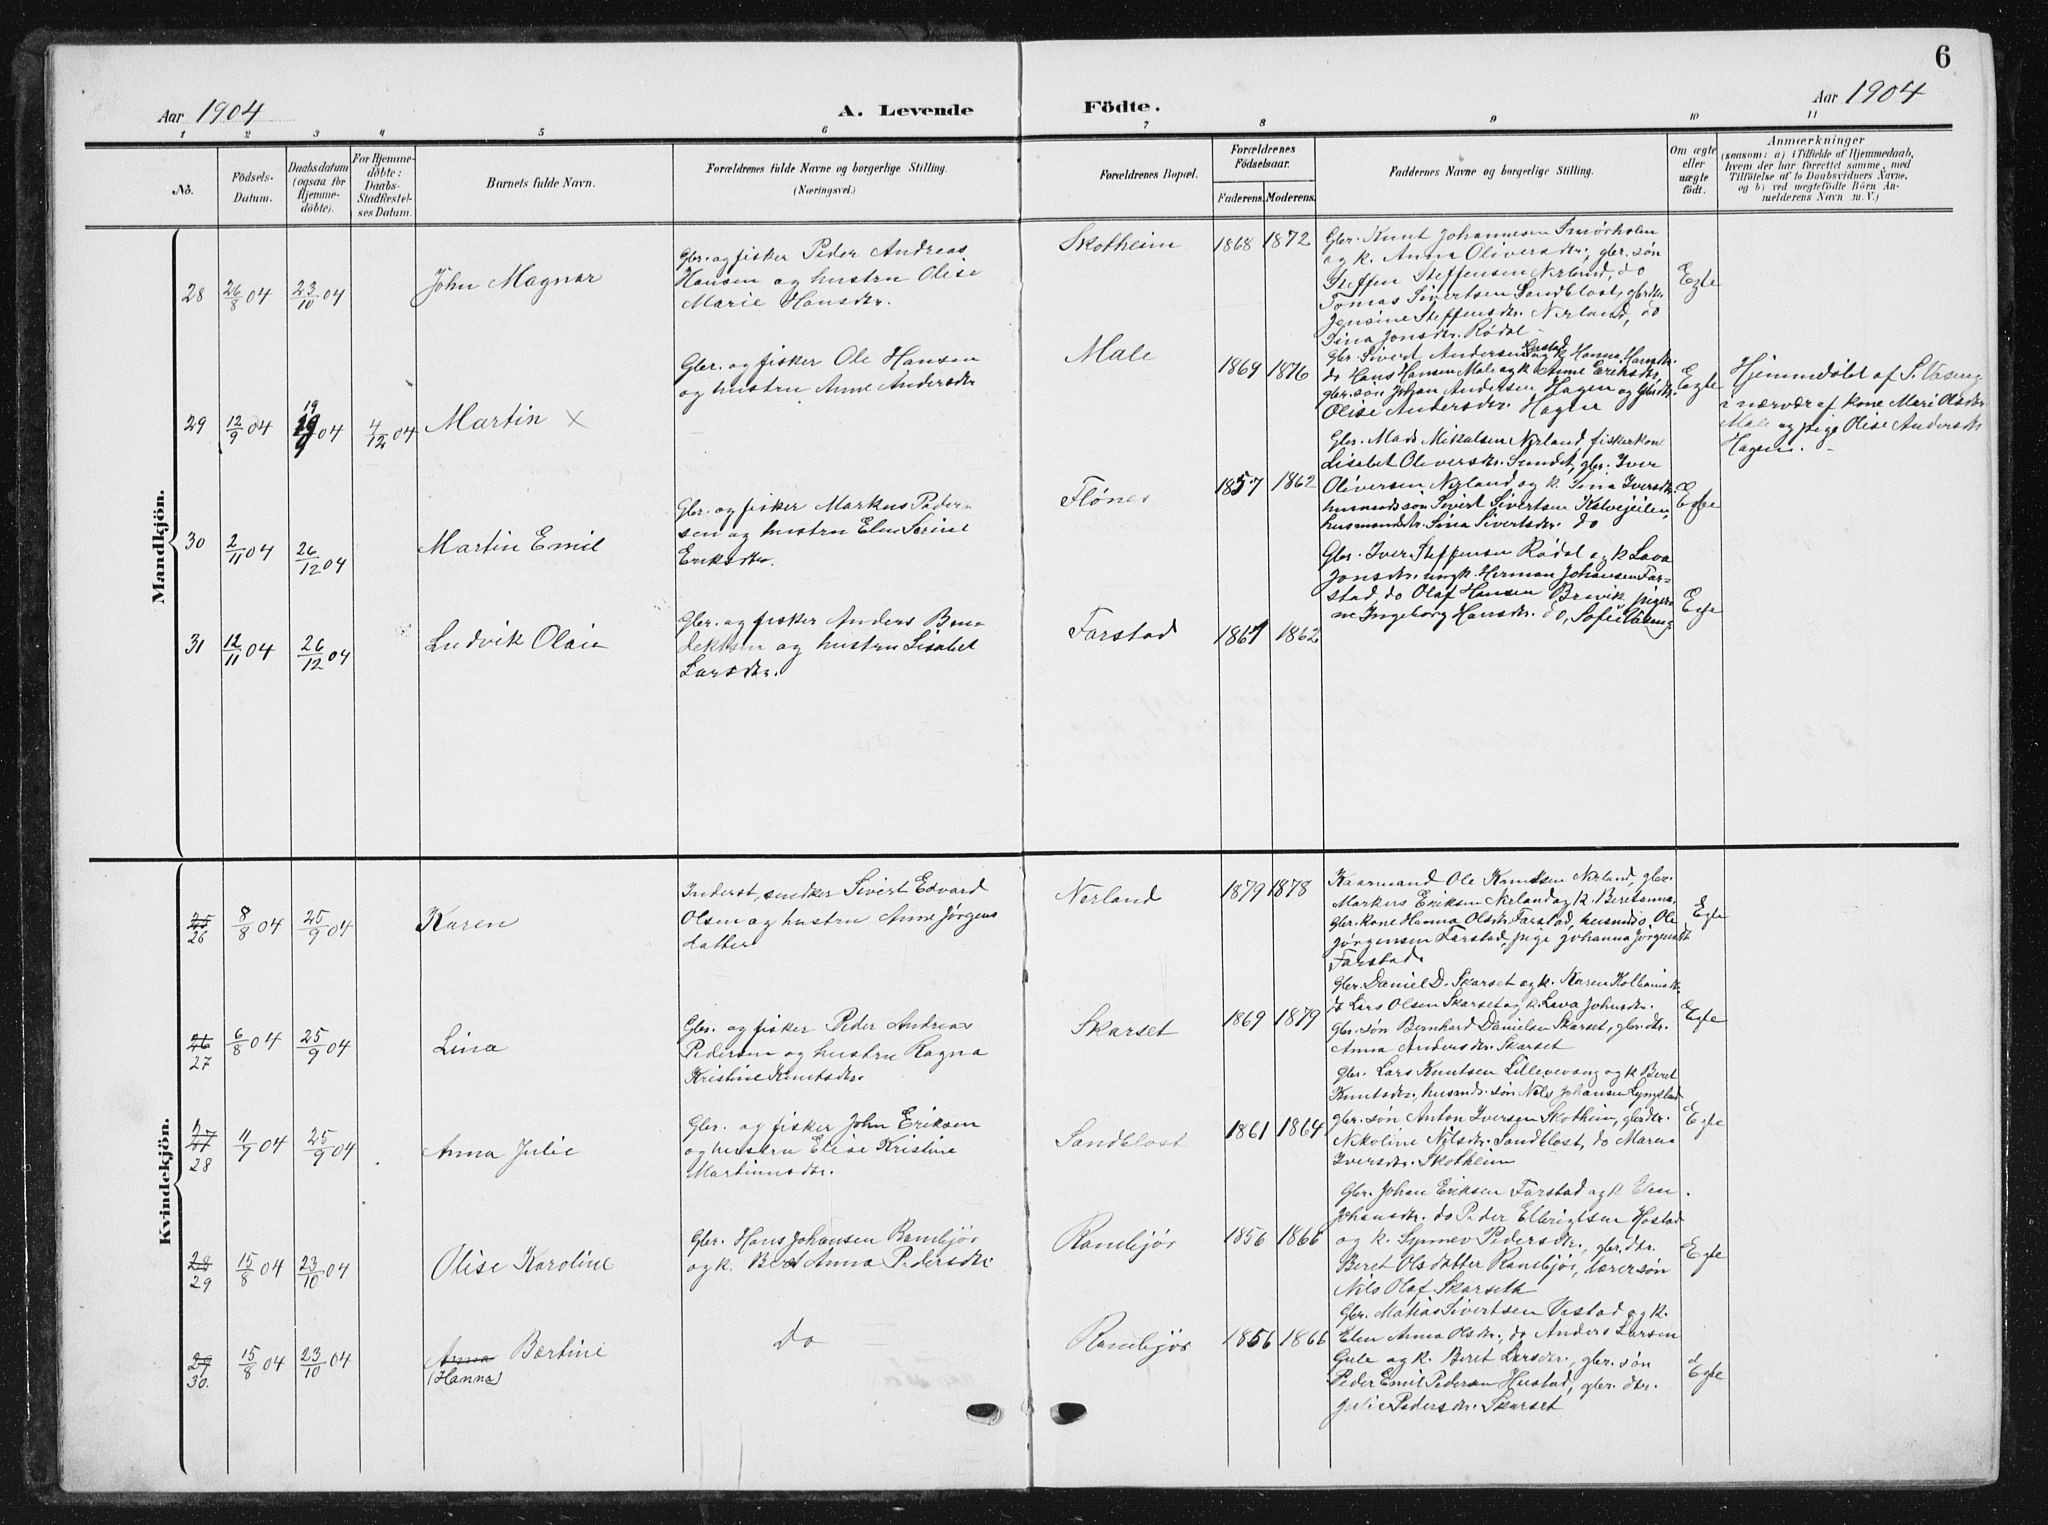 6
Aar 1904
A. Levende
Födte.
Aar 1904
1 2 3 4 5 6 7 8 9 10 11
No.
Födsels-
Datum.
Daabsdatum
(ogsaa for
Hjemme-
döbte).
For Hjemme-
döbte:
Daabs-
Stadfæstel-
ses Datum.
Barnets fulde Navn.
Forældrenes fulde Navne og borgerlige Stilling.
(Næringsvei.)
Forældrenes Bopæl.
Forældrenes
Födselsaar.
Faderens. Moderens.
Faddernes Navne og borgerlige Stilling.
Om ægte
eller
uægte
födt.
Anmærkninger
(saasom: a) i Tilfælde af Hjemmedaab,
hvem der har forrettet samme, med
Tilföielse af to Daabsvidners Navne,
og b) ved uægtefödte Börn An-
melderens Navn m. V.)
Mandkjön.
28
26/8 04
23/10 04
John Magnar
Gbr. og fisker Peder Andreas
Hansen og hustru Olise
Marie Hansdtr.
Skotheim
1868 1872
Gbr. Knut Johannesen Smørholm
og k. Anna Oliversdtr, gbr. søn
Steffen Steffensen Nerland, do
Tomas Sivertsen Sandblost, gbrdtr.
Jensine Steffensdtr. Nerland, do
Sina Jonsdtr. Rødal
Egte
29
12/9 04
19
19/9 04
4/12 04
Martin ×
Gbr. og fisker Ole Hansen
og hustru Anne Andersdtr
Male
1869 1876
Gbr. Sivert Andersen Hustad og k. Hanna Hansdtr.
do Hans Hansen Male og k. Anne Eriksdtr,
gbr. søn Johan Andersen Hagen og gbrdtr.
Olise Andersdtr. Hagen
Egte
Hjemmdøbt af S. Vaseng
i nærvær af kone Mari Olsdtr.
Male og pige Olise Andersdtr
Hagen.
30
2/11 04
26/12 04
Martin Emil
Gbr. og fisker Markus Peder-
sen og hustru Elen Serine
Eriksdtr.
Flønes
1857 1862
Gbr. Mads Mikalsen Nerland, fiskerkone
Lisabet Oliversdtr. Sundet, gbr. Iver
Oliversen Nerland og k. Sina Iversdtr.
husmandssøn Sivert Sivertsen
husmandsdtr. Sina Sivertsdtr. do
Egte
31
12/11 04
26/12 04
Ludvik Olai
Gbr. og fisker Anders Bene
dektsen og hustru Lisabet
Larsdtr.
Farstad
1867 1862
Gbr. Iver Steffensen Rødal og k. Lava
Jonsdtr. ungk. Herman Johansen Far-
stad, do Olaf Hansen Brevik, piger-
ne Ingeborg Hansdtr. do, Sofie Vaseng
Egte
Kvindekjön.
25
26
8/8 04
25/9 04
Karen
Inderst, smedker Sivert Edvard
Olsen og hustru Anne Jørgens
datter
Nerland
1879 1878
Kaarmand Ole Knutsen Nerland, gbr.
Markus Eriksen Nerland og k. Beretanna,
Gbr. kone Hanna Olsdtr. Farstad, husmds. Ole
Jørgensen Farstad, pige Johanna Jørgensdt
Farstad.
Egte
26
27
6/8 04
25/9 04
Lina
Gbr. og fisker Peder Andreas
Pedersen og hustru Ragna
Kristine Knutsdtr.
Skarset
1869 1879
Gbr. Daniel D. Skarset og k. Karen Kolbeinsdtr.
do Lars Olsen Skarset og k. Lava Johnsdtr.
Gbr. søn Bernhard Danielsen Skarset, gbr. dtr.
Anna Andersdtr. Skarset
Egte
27
28
11/7 04
25/9 04
Anna Julie
Gbr. og fisker John Eriksen
og hustru Elise Kristine
Martinusdtr.
Sandblost
1861 1864
Gbr. Lars Knutsen Lillevevang og k. Beret
Knutsdtr, husmds. søn Nils Johansen Lyngstad
gbr. søn Anton Iversen Skotheim, gbrdtr.
Nekoline Nilsdtr. Sandblost, do Maren
Iversdtr. Skotheim
Egte
28
29
15/8 04
23/10 04
Olise Karoline
Gbr. Hans Johansen Rambjør
og k. Beret Anna Pedersdtr
Rambjør
1856 1866
Gbr. Johan Eriksen Farstad og k. Elen
Johansdtr. do Peder Elbrigtsen Hostad
og k. Synnev Pedersdtr., gbr. dtr.
Beret Olsdatter Rambjør, lærersøn
Nils Olaf Skarseth
Egte
29
30.
15/8 04
23/10 04
Anna Bertine
(Hanna)
do
Rambjør
1856 1866
Gbr. Matias Sivertsen Vestad og k.
Elen Anna Olsdtr. do Anders Larsen
Gule og k. Beret Larsdtr., gbr. søn
Peder Emil Pedersen Hustad, gbr. dtr.
Julie Pedersdtr. Skarset
Egte